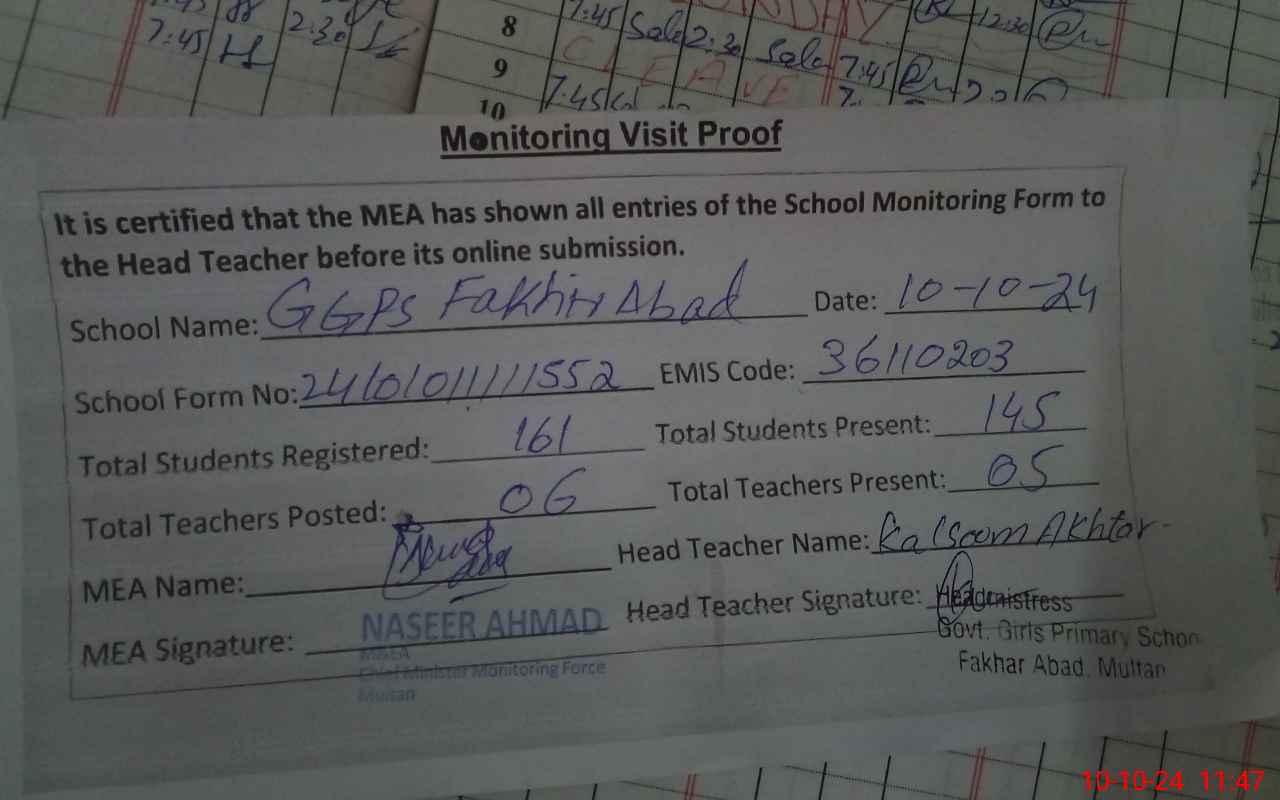 7:45
7:45 H 2:30
8 7:45 Sala 2:30 Sala 7:45 12:30
9 C LEAVE
10 7:45
Monitoring Visit Proof
It is certified that the MEA has shown all entries of the School Monitoring Form to
the Head Teacher before its online submission.
School Name: GGPS Fakhir Abad Date: 10-10-24
School Form No: 24101011111552 EMIS Code: 36110203
Total Students Registered: 161 Total Students Present: 145
Total Teachers Posted: 06 Total Teachers Present: 05
MEA Name: Head Teacher Name: Kalsoom Akhtar
MEA Signature: Head Teacher Signature:
NASEER AHMAD
M&EA
Chief Minister Monitoring Force
Multan
Headmistress
Govt. Girls Primary School
Fakhar Abad. Multan
10-10-24 11:47